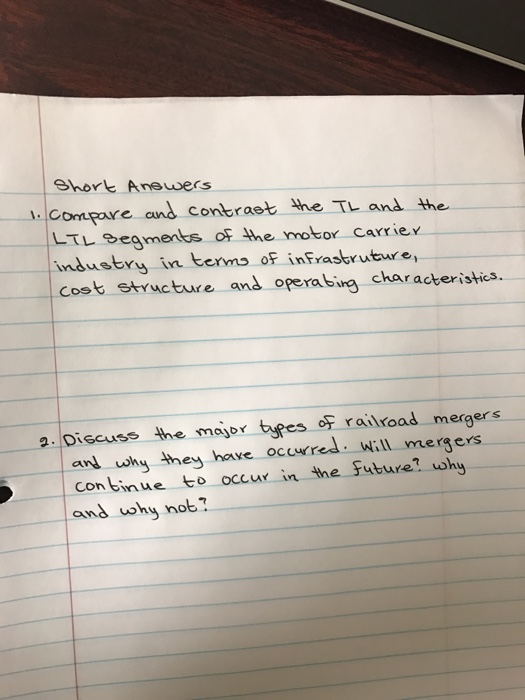 Short Answers
1. Compare and contrast the TL and the
LTL Segments of the motor carrier
industry in terms of infrastruture,
cost structure and operating characteristics.
2. Discuss the major types of railroad mergers
and why they have occurred. Will mergers
continue to occur in the future? why
and why not?